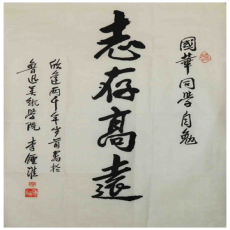 國華同學自勉
志存高遠
欣逢兩千年歲首書於
魯迅美術學院 李鐘淮